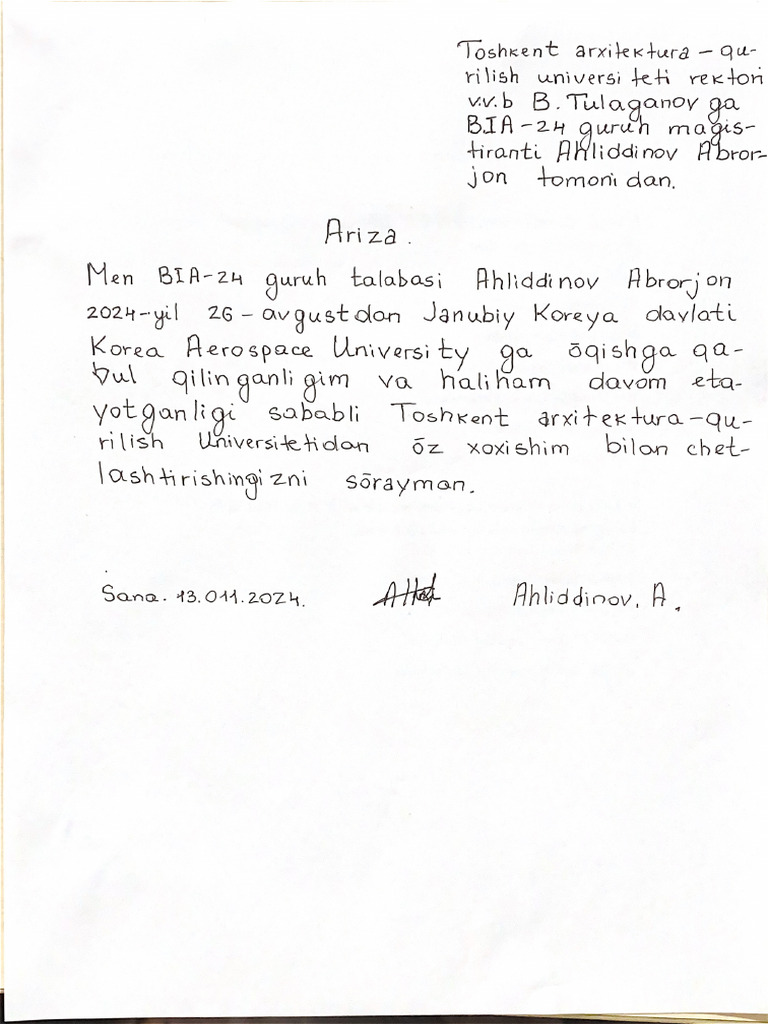 Toshkent arxitektura-qu-
rilish universiteti rektori
v.v.b B. Tulaganov ga
BIA-24 guruh magis-
tiranti Ahliddinov Abror-
jon tomonidan.
Ariza.
Men BIA-24 guruh talabasi Ahliddinov Abrorjon
2024-yil 26-avgustdan Janubiy Koreya davlati
Korea Aerospace University ga ōqishga qa-
bul qilinganligim va haliham davom eta-
yotganligi sababli Toshkent arxitektura-qu-
rilish Universitetidan ōz xoxishim bilan chet-
lashtirishingizni sōrayman.
Sana. 13.011.2024. Ahliddinov. A.